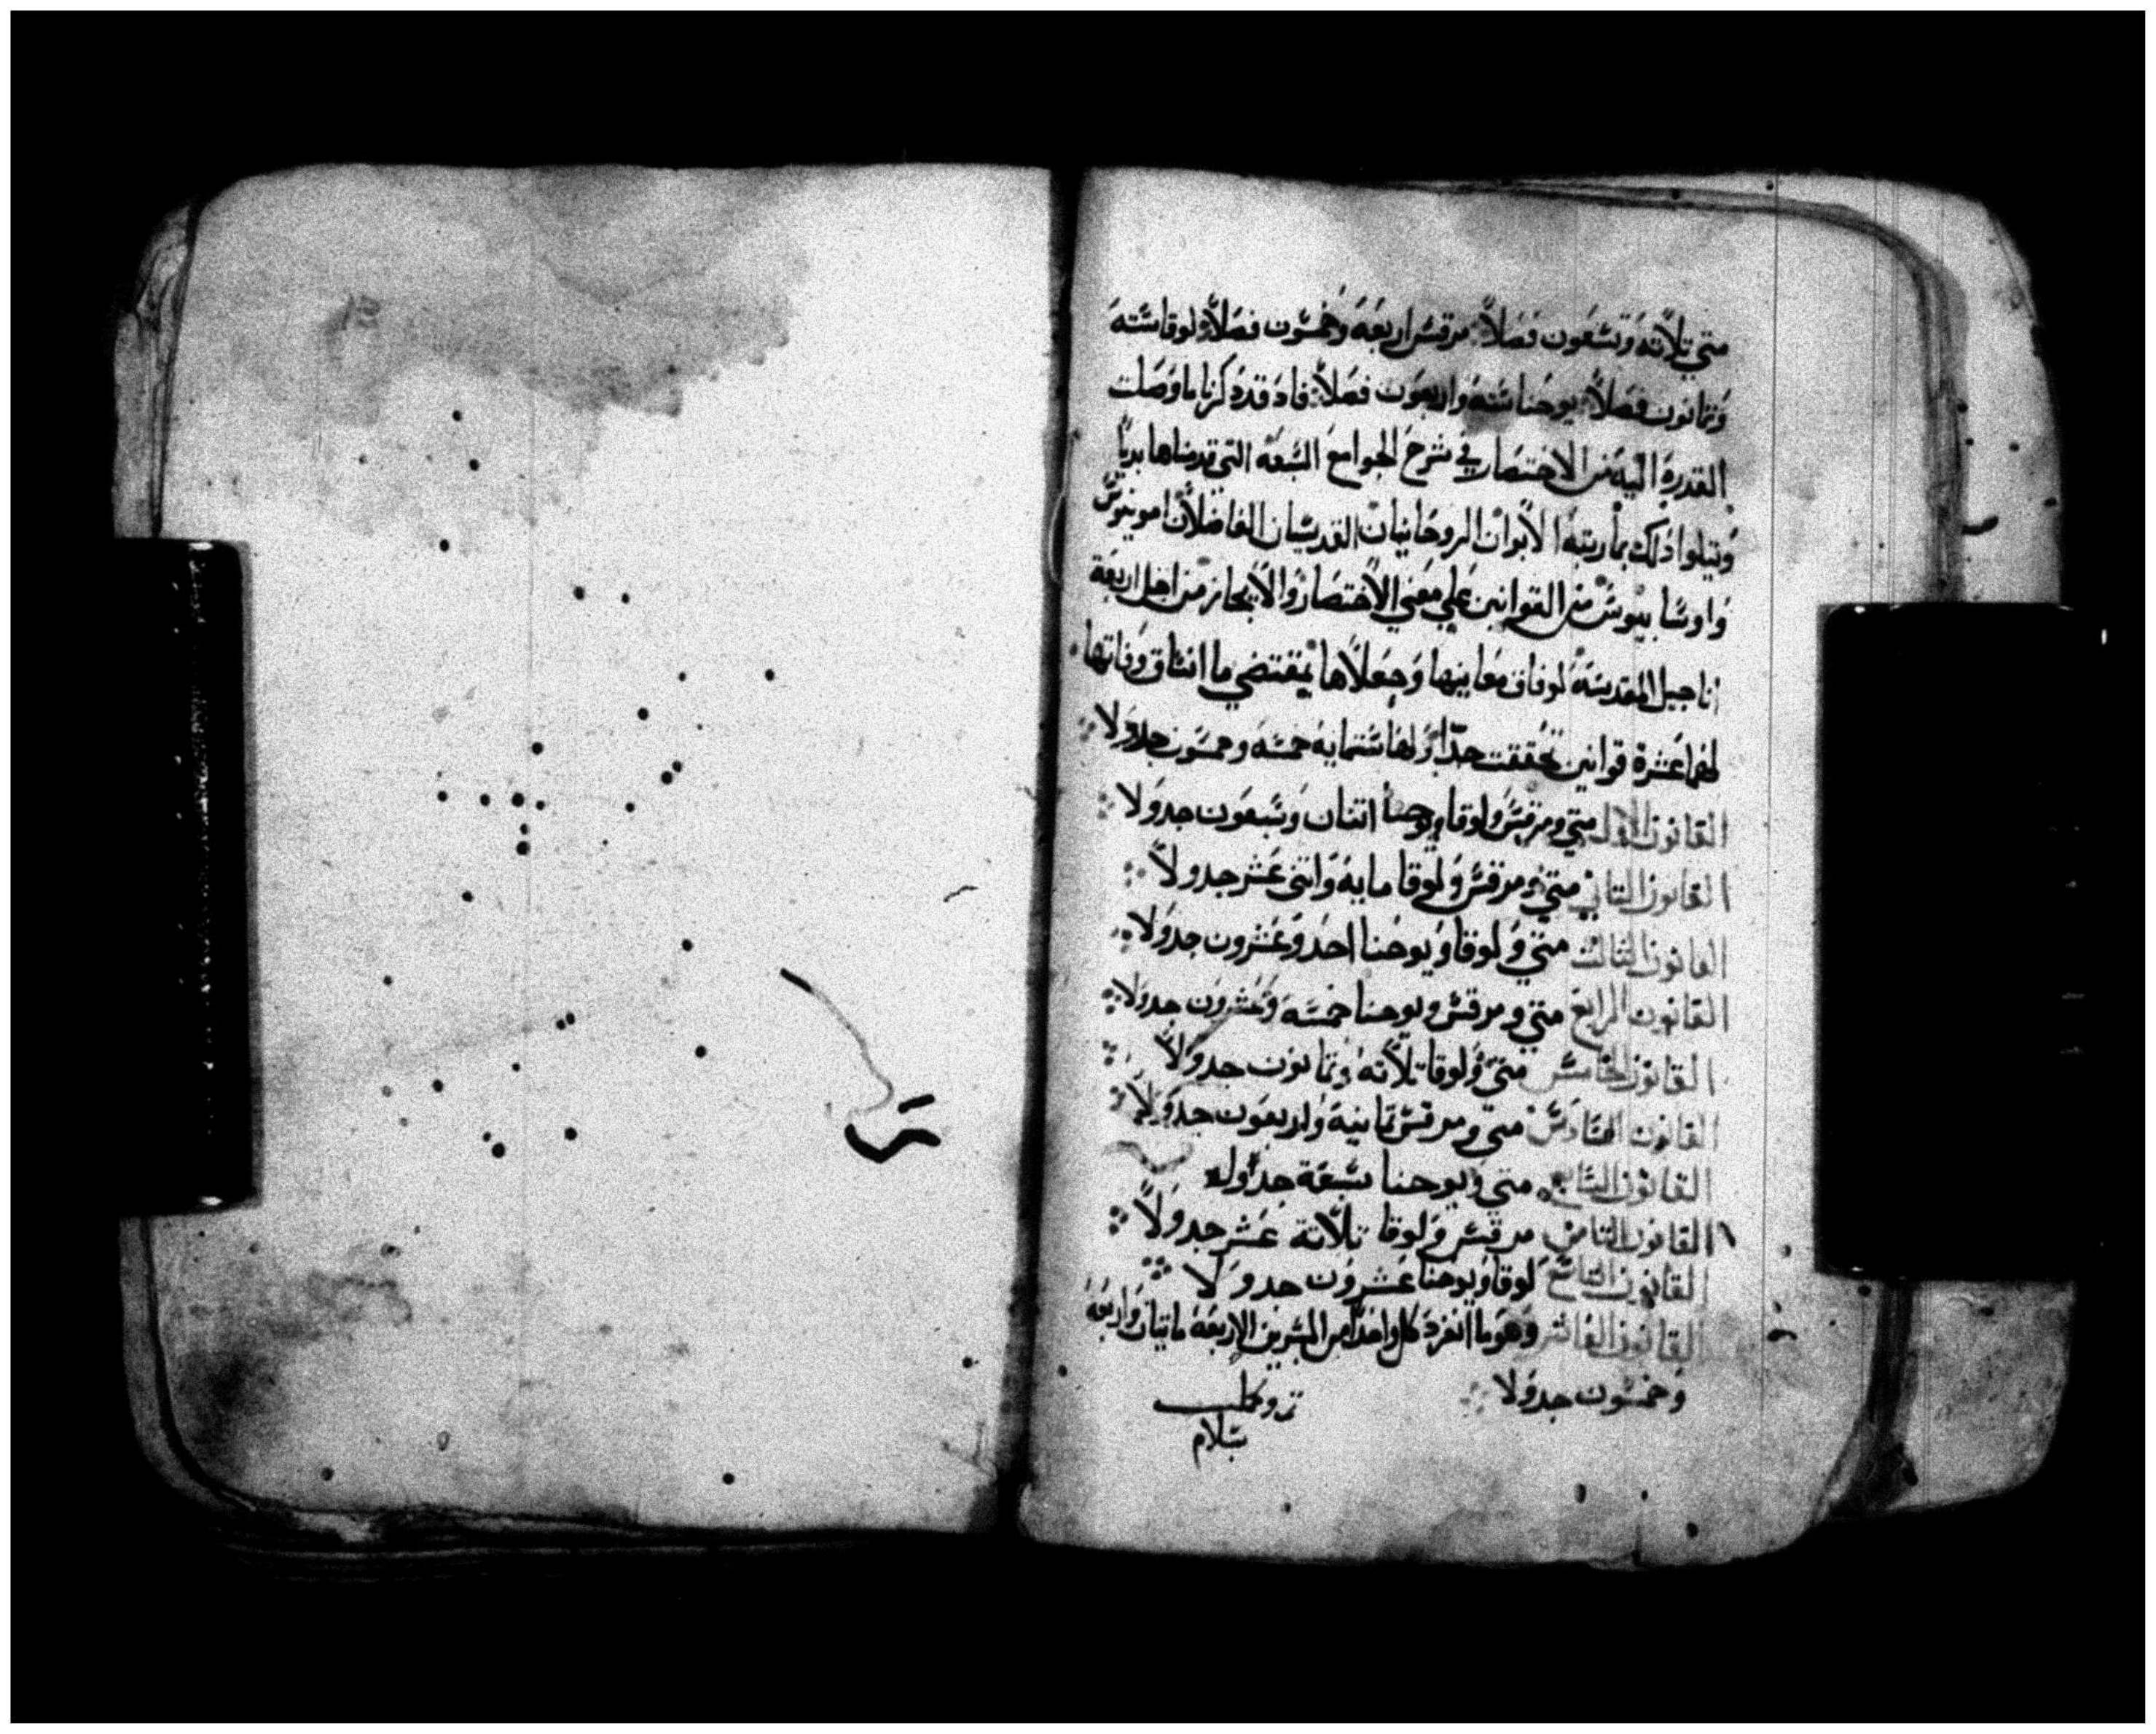 متي تلاثه وتسعون فصلاً مرقس اربعه وخمسون فصلاً لوقا سته
وثمانون فصلاً يوحنا سته واربعون فصلاً فاد قد ذكرنا ما وصلت
القدره اليه من الاختصار في شرح الجوامع التسعه التي قدمناها بديا
ونتلوا ذلك بما رتبه الأبوان الروحانيان القديسان الفاضلان امونيوس
واوسابيوس من القوانين علي معني الاختصار والايجاز من اجل اربعة
اناجيل المقدسه لوفاق معانيها وجعلاها بمقتضي ما اتفاق وفاتها
لهما عشرة قوانين تحققت جداولها ستمايه خمسه وخمسون جدولا
القانون الاول متي ومرقس ولوقا ويوحنا اتنان وسبعون جدولا
القانون التاني متي ومرقس ولوقا مايه واتني عشر جدولاً
القانون التالت متي ولوقا ويوحنا احد وعشرون جدولا
القانون الرابع متي ومرقس ويوحنا خمسه وعشرون جدولا
القانون الخامس متي ولوقا تلاته وتمانون جدولاً
القانون السادس متي ومرقس تمانية واربعون جدولا
القانون السابع متي ويوحنا سبعة جداول
القانون التامن مرقس ولوقا تلاتة عشر جدولاً
القانون التاسع لوقا ويوحنا عشرون جدولا
القانون العاشر وهو ما انفرد كل واحداً من المبشرين الاربعه مايتان واربعه
وخمسون جدولا
سلام